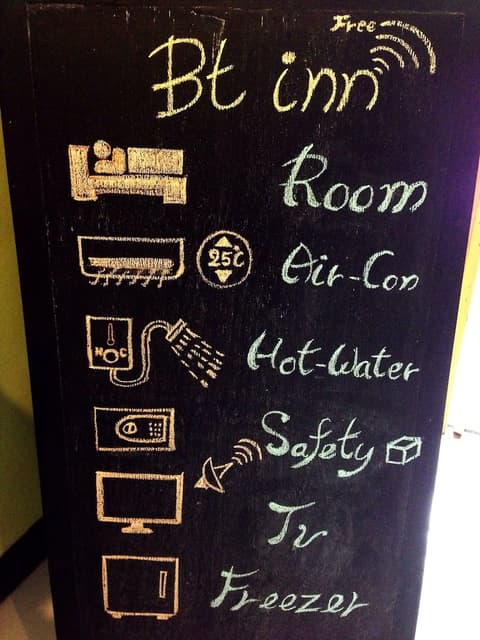 Free
Bt inn
Room
25°C
Air-Con
Hot-Water
Safety
Tv
Freezer